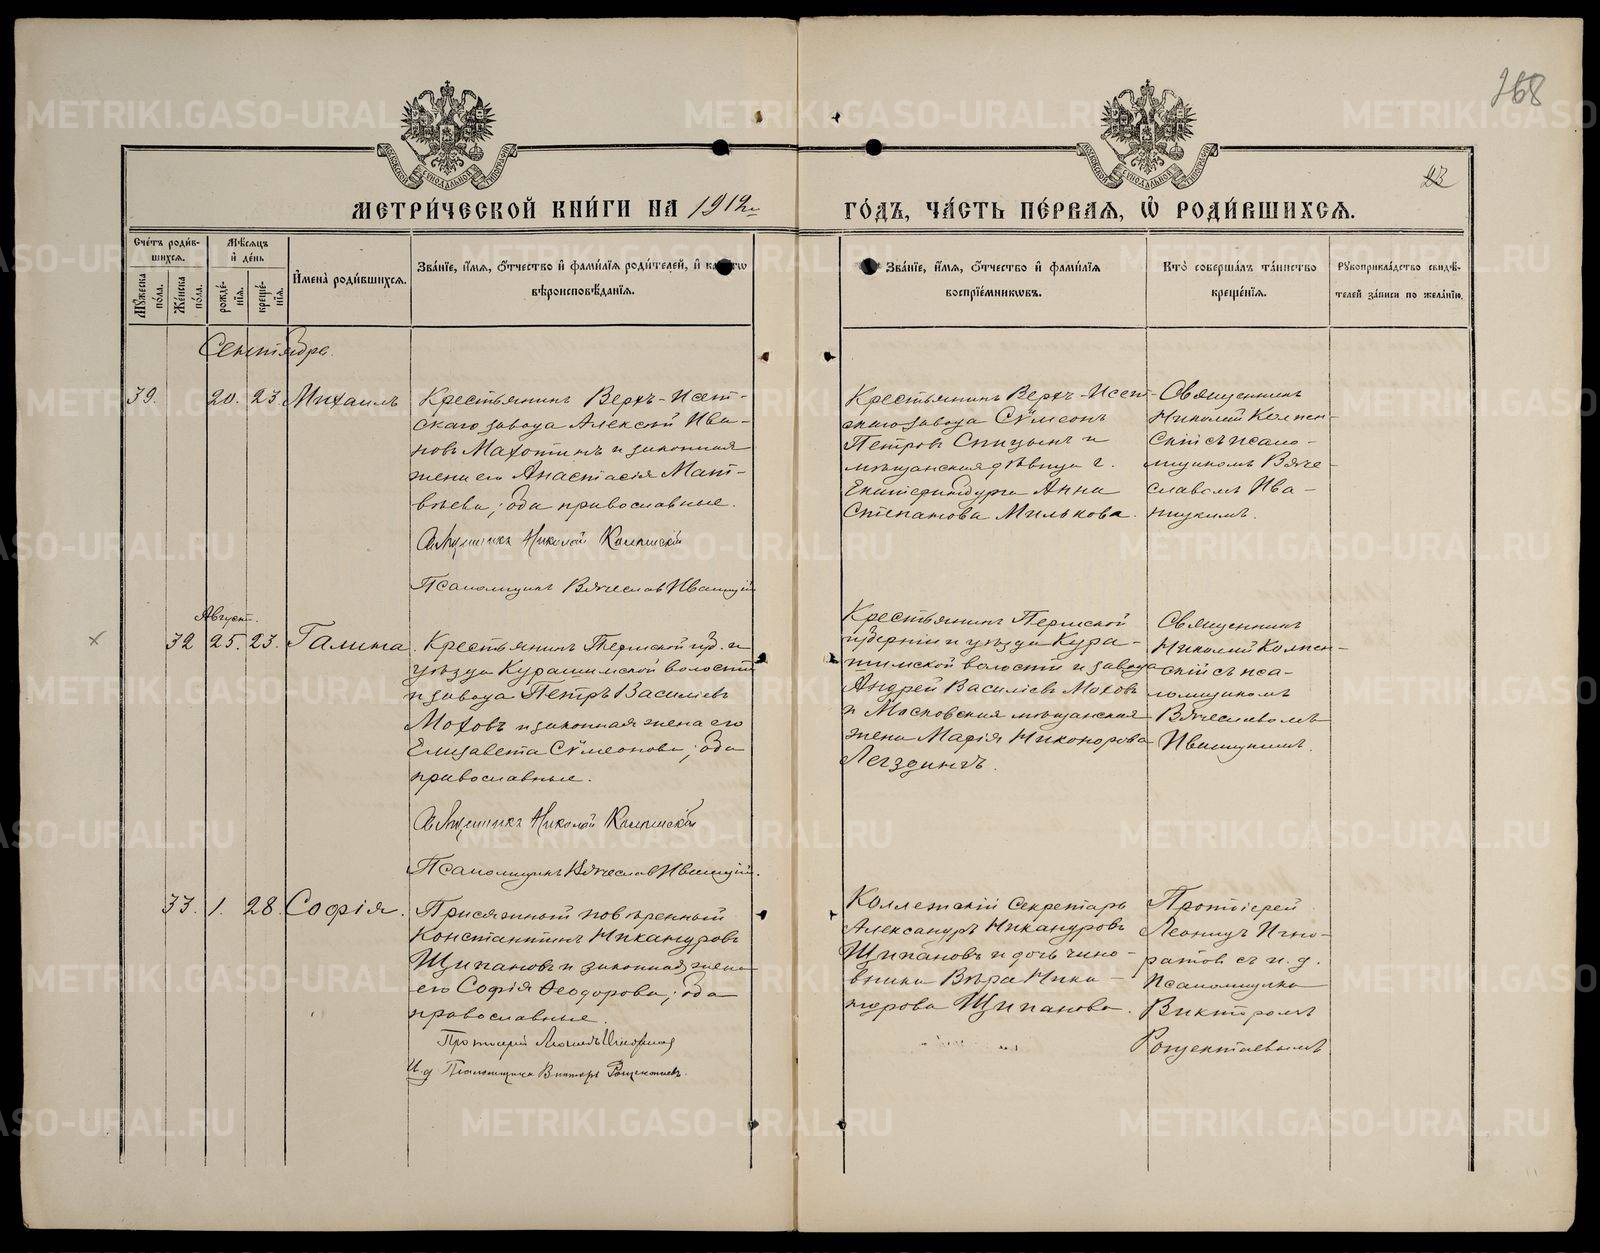 268
23
МЕТРИ́ЧЕСКОЙ КНИ́ГИ НА 1912
ГО́ДЪ, ЧА́СТЬ ПЕ́РВАЯ, Ѡ РОДИ́ВШИХСЯ.
Сче́тъ роди́вшихся.
Му́жеска по́ла.
Же́нска по́ла.
Мѣ́сяцъ и҆ де́нь
рожде́нїя.
креще́нїя.
И҆мена̀ роди́вшихся.
Зва́нїе, и҆́мя, ѻ҆́тчество и҆ фами́лїя роди́телей, и҆
вѣроисповѣ́данїя.
Зва́нїе, и҆́мя, ѻ҆́тчество и҆ фами́лїя
воспрїе́мникѡвъ.
Кто̀ соверша́лъ та́инство
креще́нїя.
Рꙋкоприкла́дство свидѣ́-
телей за́писи по жела́нїю.
Сентябрь.
39.
20.
23.
Михаилъ
Крестьянинъ Верхъ-Исет-
скаго завода Алексѣй Ива-
новъ Махотинъ и законная
жена его Анастасія Мат-
вѣева; оба православные.
Священникъ Николай
Псаломщикъ Вячеславъ Иваницкій
Крестьянинъ Верхъ-Исет-
скаго завода Сѵмеонъ
Петровъ Спицынъ и
мѣщанская дѣвица г.
Екатеринбурга Анна
Степанова Милькова.
Священникъ
Николай
скій съ псало-
мщикомъ Вяче-
славомъ Ива-
ницкимъ.
Август.
32
25.
23.
Галина
Крестьянинъ Пермской губ. и
уѣзда Курашимской волости
и завода Петръ Васильевъ
Моховъ и законная жена его
Елизавета Сѵмеонова; оба
православные.
Священникъ Николай
Псаломщикъ Вячеславъ Иваницкій.
Крестьянинъ Пермской
губерніи и уѣзда Кура-
шимской волости и завода
Андрей Васильевъ Моховъ
и Московская мѣщанская
жена Марія Никонорова
Легздингъ.
Священникъ
Николай
скій съ пса-
ломщикомъ
Вячеславомъ
Иваницкимъ.
33.
1.
28.
Софія.
Присяжный повѣренный
Константинъ Никаноровъ
Щипановъ и законная жена
его Софія Ѳеодорова; оба
православные.
Протоіерей Леонидъ Игноратовъ
И.д. Псаломщика Викторъ
Коллежскій Секретарь
Александръ Никаноровъ
Щипановъ и дочь чино-
вника Вѣра Ника-
норова Щипанова.
Протоіерей
Леонидъ Игно-
ратовъ съ и.д.
псаломщика
Викторомъ
METRIKI.GASO-URAL.RU